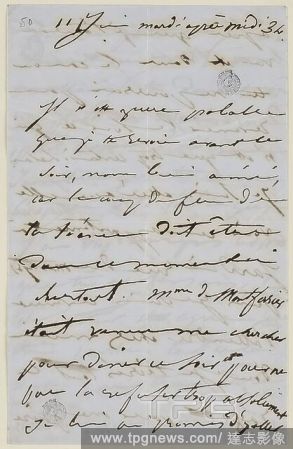 50
11 juin mardi après midi 3h
Il n'est guère probable
que je te revoie avant ce
soir, mon bien aimé,
car le coup de feu de
la
dans ce moment
Mme de Montferrier
était venue me chercher
pour dîner ce soir
que la refuser trop absolument
je lui ai promis d'aller
www.tpgnews.com/達志影像